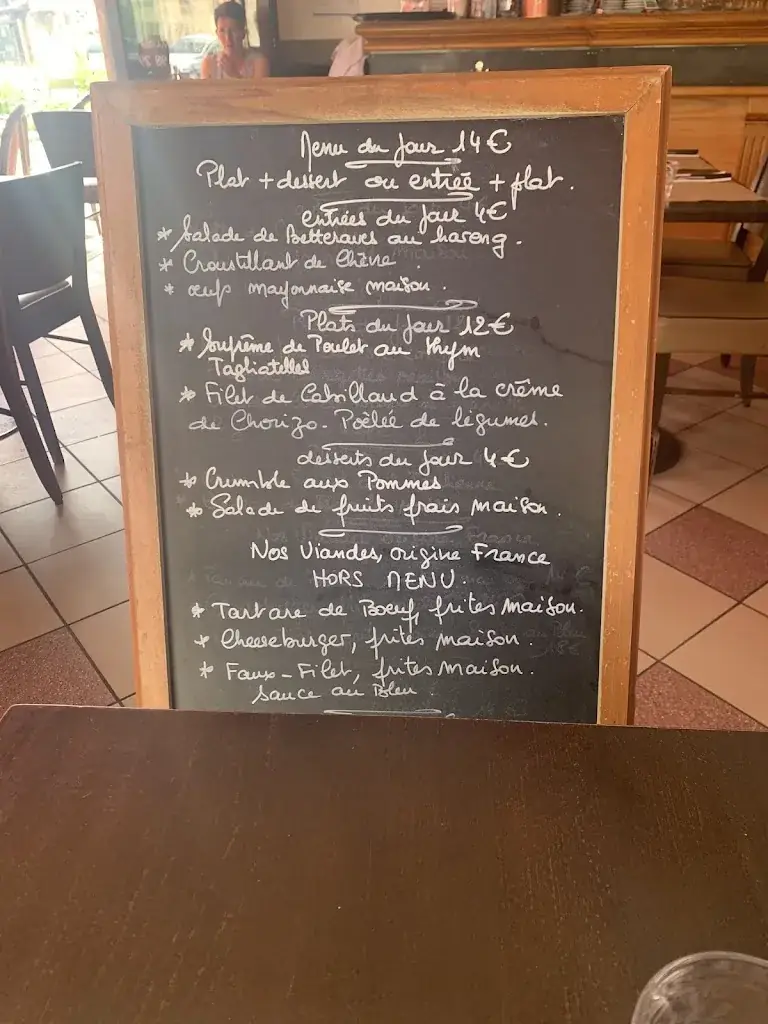 Menu du Jour 14€
Plat + dessert ou entrée + plat.
entrées du Jour 4€
* Salade de Betteraves au hareng.
* Croustillant de Chèvre
* œufs mayonnaise maison.
Plats du Jour 12€
* Suprême de Poulet au thym
Tagliatelles
* Filet de Cabillaud à la crème
de Chorizo. Poêlée de légumes.
desserts du Jour 4€
* Crumble aux Pommes
* Salade de fruits frais maison.
Nos Viandes, origine France
HORS MENU.
* Tartare de Boeuf, frites maison.
* Cheeseburger, frites maison.
* Faux-Filet, frites maison.
sauce au Bleu.